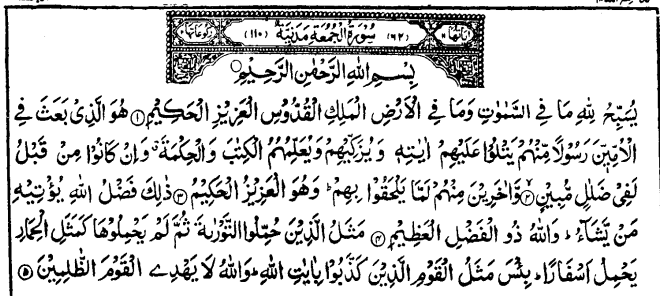 اٰیاتها ۱۱ (۶۲) سُوْرَةُ الْجُمُعَةِ مَدَنِیَّةٌ (۱۱۰) رُكُوْعَاتُهَا ۲
بِسْمِ اللّٰهِ الرَّحْمٰنِ الرَّحِیْمِ
یُسَبِّحُ لِلّٰهِ مَا فِی السَّمٰوٰتِ وَمَا فِی الْاَرْضِ الْمَلِكِ الْقُدُّوْسِ الْعَزِیْزِ الْحَكِیْمِ ۱ هُوَ الَّذِیْ بَعَثَ فِی
الْاُمِّیّٖنَ رَسُوْلًا مِّنْهُمْ یَتْلُوْا عَلَیْهِمْ اٰیٰتِهٖ وَیُزَكِّیْهِمْ وَیُعَلِّمُهُمُ الْكِتٰبَ وَالْحِكْمَةَ ۗ وَاِنْ كَانُوْا مِنْ قَبْلُ
لَفِیْ ضَلٰلٍ مُّبِیْنٍ ۲ وَّاٰخَرِیْنَ مِنْهُمْ لَمَّا یَلْحَقُوْا بِهِمْ ؕ وَهُوَ الْعَزِیْزُ الْحَكِیْمُ ۳ ذٰلِكَ فَضْلُ اللّٰهِ یُؤْتِیْهِ
مَنْ یَّشَآءُ ؕ وَاللّٰهُ ذُو الْفَضْلِ الْعَظِیْمِ ۴ مَثَلُ الَّذِیْنَ حُمِّلُوا التَّوْرٰىةَ ثُمَّ لَمْ یَحْمِلُوْهَا كَمَثَلِ الْحِمَارِ
یَحْمِلُ اَسْفَارًا ؕ بِئْسَ مَثَلُ الْقَوْمِ الَّذِیْنَ كَذَّبُوْا بِاٰیٰتِ اللّٰهِ ؕ وَاللّٰهُ لَا یَهْدِی الْقَوْمَ الظّٰلِمِیْنَ ۵